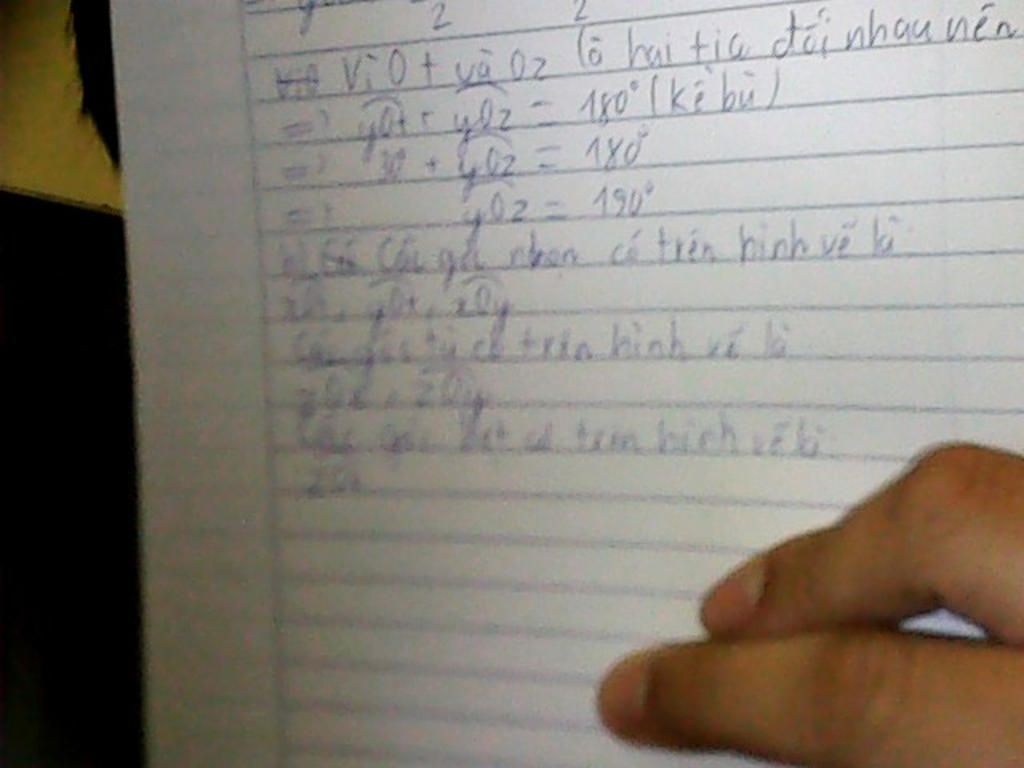 2 2
Vì Ot và Oz là hai tia đối nhau nên
=> yOt + yOz = 180° (kề bù)
=> 30 + yOz = 180°
=> yOz = 150°
b) Các góc nhọn có trên hình vẽ là
xOt, yOt, xOy
Các góc tù có trên hình vẽ là
zOx, zOy
Các góc bẹt có trên hình vẽ là
zOt